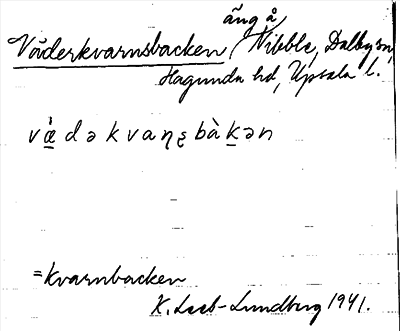 äng å
Väderkvarnsbacken, Nibble, Dalby sn,
Hagunda hd, Upsala l.
vœ̀də kvaɳʂbàkən
= kvarnbacken
K. Leeb-Lundberg 1941.